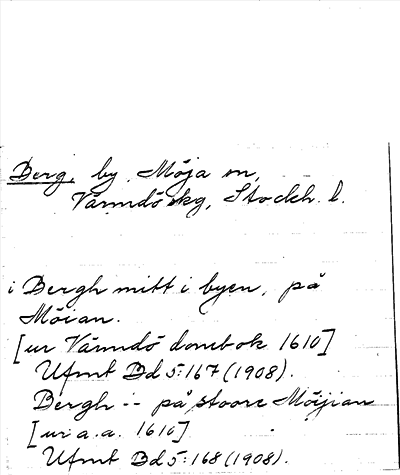 Berg, by, Möja sn,
Värmdö skg, Stockh. l.
i Bergh mitt i byen, på
Möian.
[ur Värmdö dombok 1610]
Ufmt Bd 5:167 (1908).
Bergh :- på stoore Möijian
[ur a.a. 1610]
Ufmt Bd 5:168 (1908).